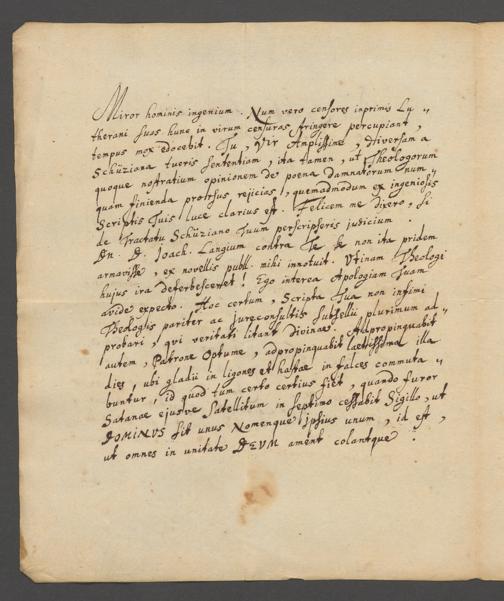 Miror hominis ingenium. Num vero censores inprimis Lu„
therani suas hunc in virum censuras stringere percupiant,
tempus mox edocebit. Tu, Vir Amplissime, diversam a
Schüziana tueris sententiam, ita tamen, ut Theologorum
quoque nostratium opinionem de poena damnatorum num„
quam finienda prorsus rejicias, quemadmodum ex ingeniosis
Scriptis Tuis luce clarius est. Felicem me dixero, si
de Tractatu Schüziano Tuum perscripseris judicium.
Dn. D. Joach. Langium contra Te se non ita pridem
armavisse, ex novellis publ. mihi innotuit. Utinam Theologi
hujus ira deferbesceret! Ego interea Apologiam Tuam
avide expecto. Hoc certum, Scripta Tua non infimi
Theologis pariter ac jureconsultis subsellii plurimum ad
probari, qui veritati litant divinae. Adpropinquabit
autem, Patrone Optume, adpropinquabit laetissima illa
dies, ubi gladii in ligones et hastae in falces commuta„
buntur, id quod tum certo certius fiet, quando furor
Satanae ejusve Satellitum in septimo cessabit Sigillo, ut
DOMINUS sit unus Nomenque ipsius unum, id est,
ut omnes in unitate DEUM ament colantque.